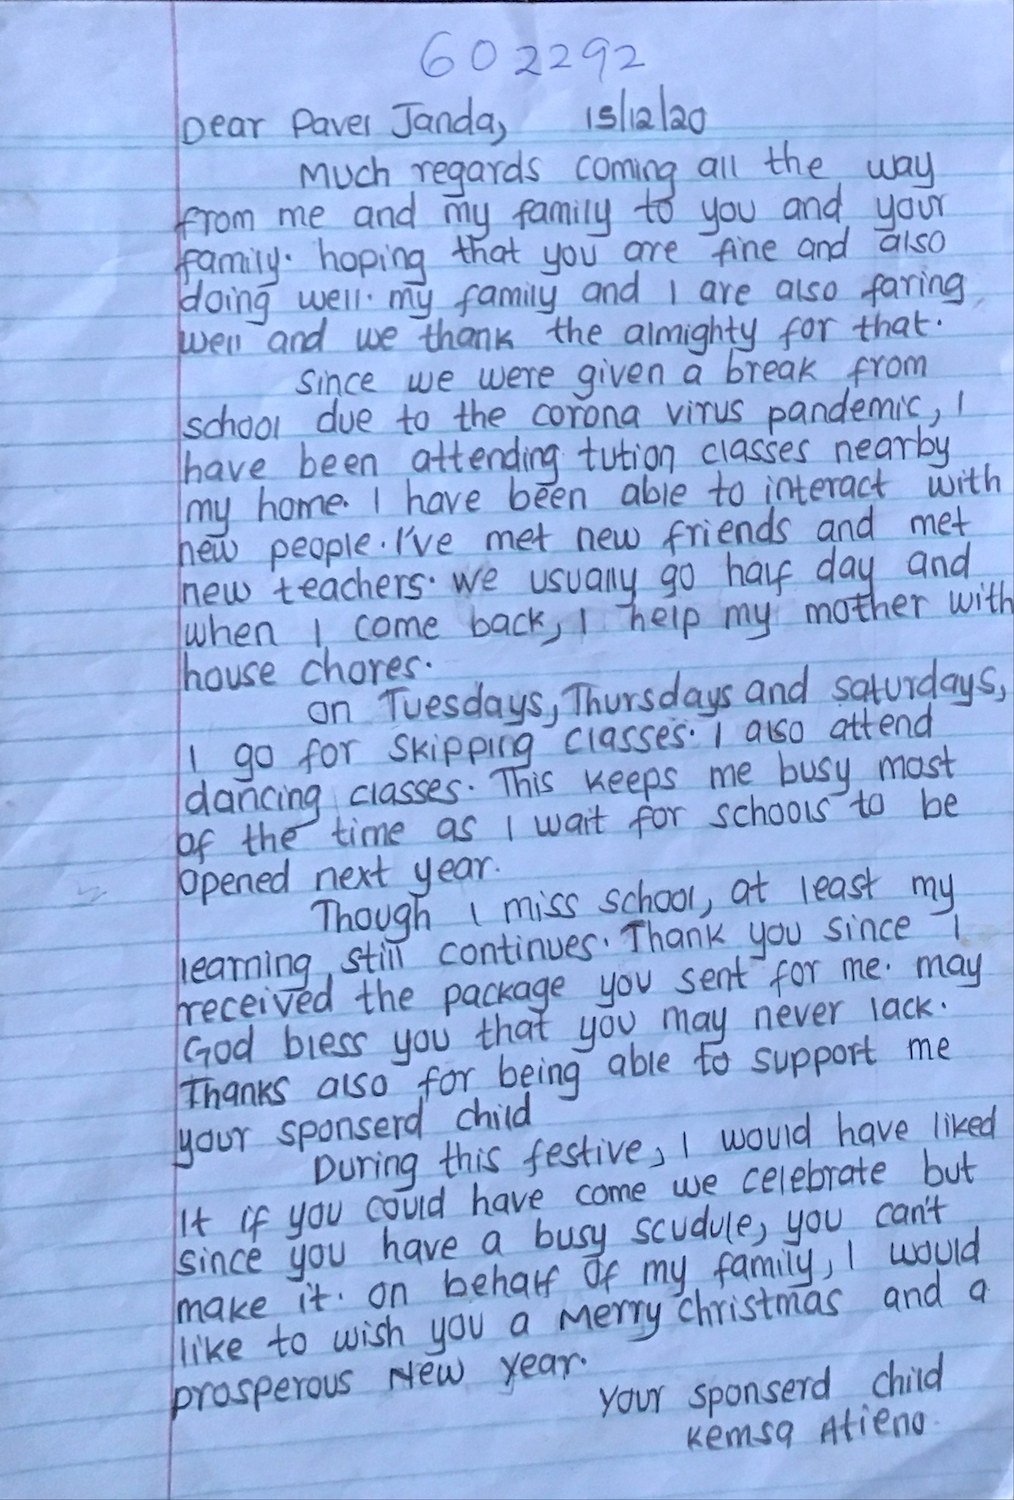 602292
Dear Pavel Janda, 15/12/20
Much regards coming all the way
from me and my family to you and your
family. hoping that you are fine and also
doing well. my family and I are also faring
well and we thank the almighty for that.
Since we were given a break from
school due to the corona virus pandemic, I
have been attending tution classes nearby
my home. I have been able to interact with
new people. I've met new friends and met
new teachers. We usually go half day and
when I come back, I help my mother with
house chores.
On Tuesdays, Thursdays and saturdays,
I go for skipping classes. I also attend
dancing classes. This keeps me busy most
of the time as I wait for schools to be
opened next year.
Though I miss school, at least my
learning still continues. Thank you since I
received the package you sent for me. may
God bless you that you may never lack.
Thanks also for being able to support me
your sponserd child
During this festive, I would have liked
it if you could have come we celebrate but
since you have a busy scudule, you can't
make it. on behalf of my family, I would
like to wish you a Merry christmas and a
prosperous New Year.
Your sponserd child
Kemsa Atieno.